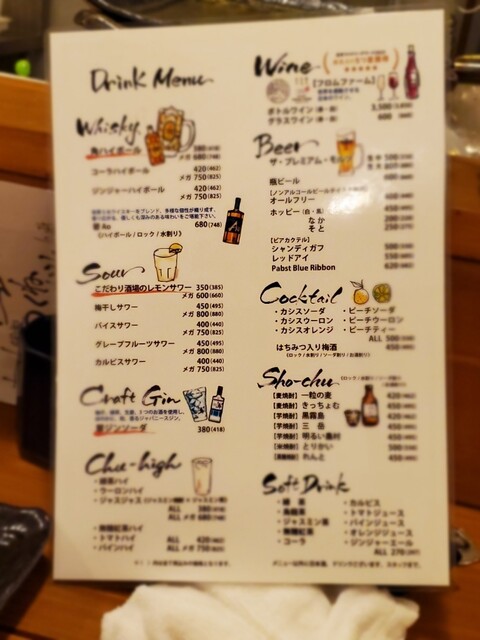 Drink Menu
Whisky
角ハイボール 380(418)
メガ 680(748)
コーラハイボール 420(462)
メガ 750(825)
ジンジャーハイボール 420(462)
メガ 750(825)
碧Ao 680(748)
(ハイボール / ロック / 水割り)
Sour
こだわり酒場のレモンサワー 350(385)
メガ 600(660)
梅干しサワー 450(495)
メガ 800(880)
バイスサワー 400(440)
メガ 750(825)
グレープフルーツサワー 450(495)
メガ 800(880)
カルピスサワー 400(440)
メガ 750(825)
Craft Gin
翠ジンソーダ 380(418)
Chu-high
・緑茶ハイ
・ウーロンハイ
ALL 380(418)
メガ ALL 680(748)
・トマトハイ ALL 420(462)
・パインハイ メガ ALL 750(825)
Wine
[フロムファーム]
ボトルワイン 3,500
グラスワイン 600
Beer
ザ・プレミアム・モルツ
瓶ビール 600
オールフリー
ホッピー (白・黒)
なか
そと 250
[ビアカクテル]
シャンディガフ 500
レッドアイ 550
Pabst Blue Ribbon 620
Cocktail
・カシスソーダ ・ピーチソーダ
・カシスウーロン ・ピーチウーロン
・カシスオレンジ ・ピーチティー
ALL 500
はちみつ入り梅酒 450
(ロック / 水割り / ソーダ割り / お湯割り)
Sho-chu
[麦焼酎] 一粒の麦 420
[麦焼酎] きっちょむ 450
[芋焼酎] 黒霧島 420
[芋焼酎] 三岳 450
[芋焼酎] 明るい農村 450
[米焼酎] とりかい 500
[黒糖焼酎] れんと 450
Soft Drink
・緑茶 ・カルピス
・烏龍茶 ・トマトジュース
・ジャスミン茶 ・パインジュース
・オレンジジュース
・コーラ ・ジンジャーエール
ALL 270